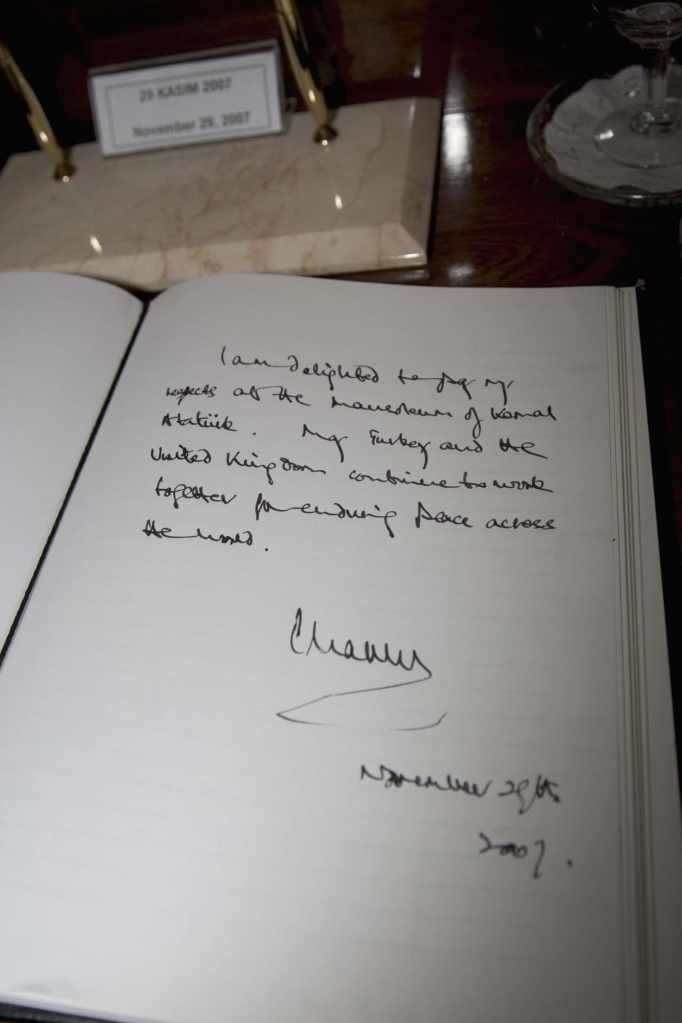 29 KASIM 2007
November 29, 2007
I am delighted to pay my
respects at the Mausoleum of Kamal
Atatürk. May Turkey and the
United Kingdom continue to work
together for enduring peace across
the world.
Charles
November 29th
2007.